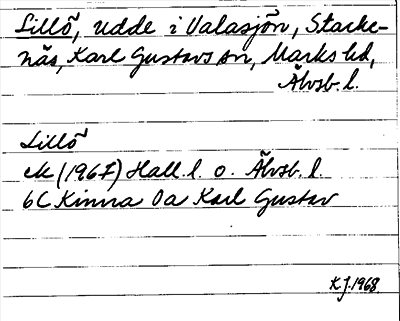 Lillö, udde i Valasjön, Stacke-
näs, Karl Gustavs sn, Marks hd,
Älvsb. l.
Lillö
ek (1967) Hall. l. o. Älvsb. l.
6C Kinna 0a Karl Gustav
K.J. 1968